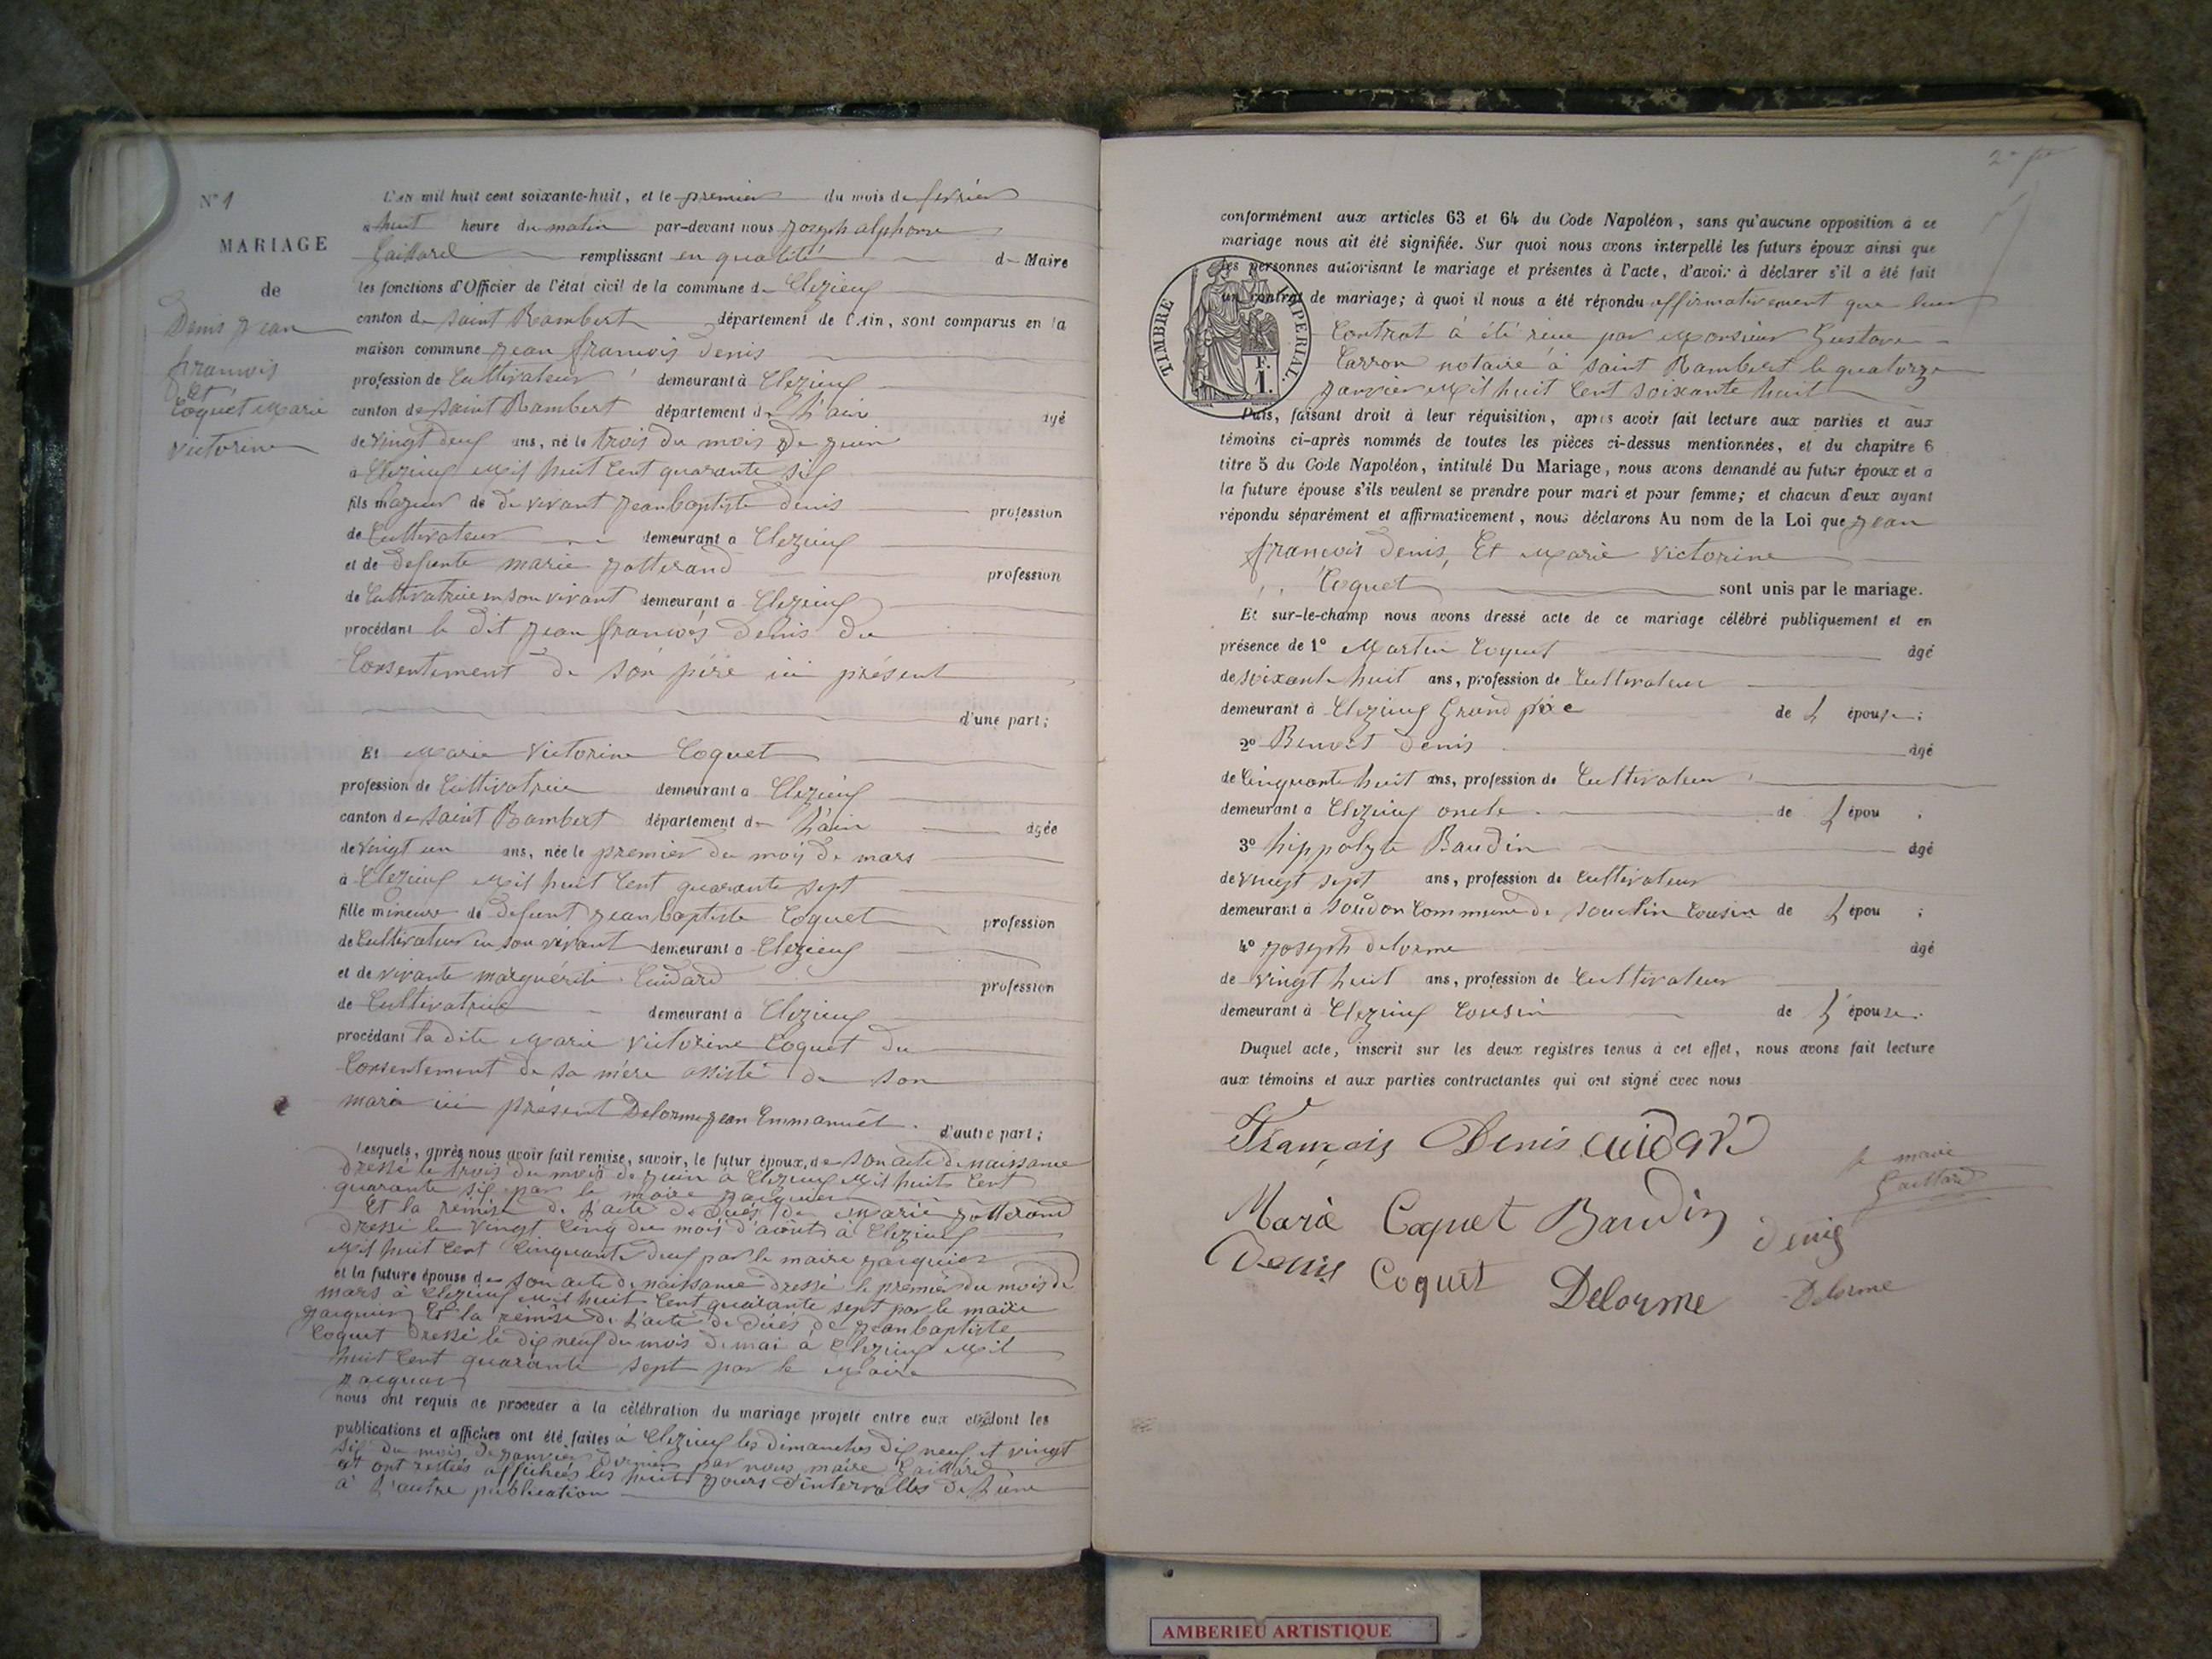 N° 1
MARIAGE
de
Denis Jean
francois
Et
Coquet Marie
victorine
L'AN mil huit cent soixante-huit, et le premier du mois de fevrier
a huit heure du matin par-devant nous Joseph alphonse
Gaillard remplissant en qualité de Maire
les fonctions d'Officier de l'état civil de la commune de Clezieux
canton de saint Rambert département de l'Ain, sont comparus en la
maison commune jean françois denis
profession de Cultivateur demeurant à Clezieux
canton de saint Rambert département de L'ain âgé
de vingt deux ans, né le trois du mois de juin
à Clezieux Mil huit Cent quarante six
fils majeur de du vivant jean baptiste denis profession
de Cultivateur demeurant à Clezieux
et de defunte marie jotterand profession
de Cultivatrice en son vivant demeurant à Clezieux
procédant le dit jean françois denis du
Consentement de son père ici présent
d'une part;
Et Marie Victorine Coquet
profession de Cultivatrice demeurant à Clezieux
canton de saint Rambert département de L'ain âgée
de vingt un ans, née le premier du mois de mars
à Clezieux Mil huit Cent quarante sept
fille mineure de defunt jean baptiste Coquet profession
de Cultivateur en son vivant demeurant à Clezieux
et de vivante marguérite Cuidard profession
de Cultivatrice demeurant à Clezieux
procédant la dite Marie victorine Coquet du
Consentement de sa mère assisté de son
mari ici présent Delorme jean Emmanuel.
d'autre part;
Lesquels, après nous avoir fait remise, savoir, le futur époux, de son acte de naissance
dressé le trois du mois de juin à Clezieux Mil huit Cent
quarante six par le maire jacquier
Et la remise de L'acte de décés de Marie jotterand
dressé le vingt Cinq du mois d'aoûts à Clezieux
Mil huit Cent Cinquante deux par le maire jacquier
et la future épouse de son acte de naissance dressé le premier du mois de
mars à Clezieux Mil huit Cent quarante sept par le maire
jacquier Et la remise de L'acte de décés de jean baptiste
Coquet dressé le dix neuf du mois de mai à Clezieux Mil
huit Cent quarante sept par le Maire
jacquier
nous ont requis de procéder à la célébration du mariage projeté entre eux et dont les
publications et affiches ont été faites à Clezieux les dimanches dix neuf et vingt
six du mois de janvier dernier par nous maire Gaillard
et ont restées affichées les huit jours d'intervalles de L'une
à L'autre publication
conformément aux articles 63 et 64 du Code Napoléon, sans qu'aucune opposition à ce
mariage nous ait été signifiée. Sur quoi nous avons interpellé les futurs époux ainsi que
les personnes autorisant le mariage et présentes à l'acte, d'avoir à déclarer s'il a été fait
un contrat de mariage; à quoi il nous a été répondu affirmativement que leur
Contrat à été reçu par Monsieur Gustave
Carron notaire à saint Rambert le quatorze
janvier Mil huit Cent soixante huit
TIMBRE IMPERIAL.
1 F.
Puis, faisant droit à leur réquisition, après avoir fait lecture aux parties et aux
témoins ci-après nommés de toutes les pièces ci-dessus mentionnées, et du chapitre 6
titre 5 du Code Napoléon, intitulé Du Mariage, nous avons demandé au futur époux et à
la future épouse s'ils veulent se prendre pour mari et pour femme; et chacun d'eux ayant
répondu séparément et affirmativement, nous déclarons Au nom de la Loi que jean
françois denis, Et Marie victorine
Coquet sont unis par le mariage.
Et sur-le-champ nous avons dressé acte de ce mariage célébré publiquement et en
présence de 1° Martin Coquet âgé
de soixante huit ans, profession de Cultivateur
demeurant à Clezieux Grand père de L épouse;
2° Benoit denis âgé
de Cinquante huit ans, profession de Cultivateur
demeurant à Clezieux oncle de L épou ;
3° hippolyte Baudin âgé
de vingt sept ans, profession de Cultivateur
demeurant à soudon Commune de souclin Cousin de L épou ;
4° joseph delorme âgé
de vingt huit ans, profession de Cultivateur
demeurant à Clezieux Cousin de L'épouse.
Duquel acte, inscrit sur les deux registres tenus à cet effet, nous avons fait lecture
aux témoins et aux parties contractantes qui ont signé avec nous
François Denis CuidarD
le maire
Gaillard
Marie Coquet Baudin
Denis
Denis Coquet Delorme
Delorme
AMBERIEU ARTISTIQUE